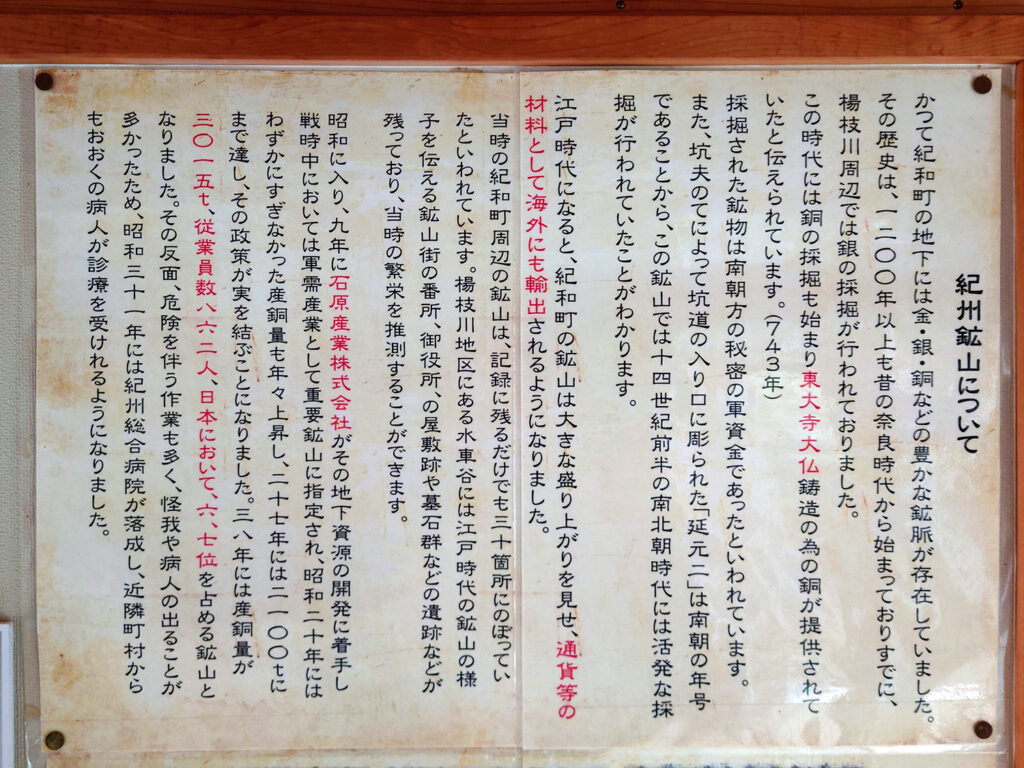 紀州鉱山について
かつて紀和町の地下には金・銀・銅などの豊かな鉱脈が存在していました。
その歴史は、一二〇〇年以上も昔の奈良時代から始まっておりすでに、
楊枝川周辺では銀の採掘が行われておりました。
この時代には銅の採掘も始まり東大寺大仏鋳造の為の銅が提供されて
いたと伝えられています。(743年)
採掘された鉱物は南朝方の秘密の軍資金であったといわれています。
また、坑夫のてによって坑道の入り口に彫られた「延元二」は南朝の年号
であることから、この鉱山では十四世紀前半の南北朝時代には活発な採
掘が行われていたことがわかります。
江戸時代になると、紀和町の鉱山は大きな盛り上がりを見せ、通貨等の
材料として海外にも輸出されるようになりました。
当時の紀和町周辺の鉱山は、記録に残るだけでも三十箇所にのぼってい
たといわれています。楊枝川地区にある水車谷には江戸時代の鉱山の様
子を伝える鉱山街の番所、御役所、の屋敷跡や墓石群などの遺跡などが
残っており、当時の繁栄を推測することができます。
昭和に入り、九年に石原産業株式会社がその地下資源の開発に着手し
戦時中においては軍需産業として重要鉱山に指定され、昭和二十年には
わずかにすぎなかった産銅量も年々上昇し、二十七年には二一〇〇tに
まで達し、その政策が実を結ぶことになりました。三八年には産銅量が
三〇一五t、従業員数八六二人、日本において、六、七位を占める鉱山と
なりました。その反面、危険を伴う作業も多く、怪我や病人の出ることが
多かったため、昭和三十一年には紀州総合病院が落成し、近隣町村から
もおおくの病人が診療を受けれるようになりました。